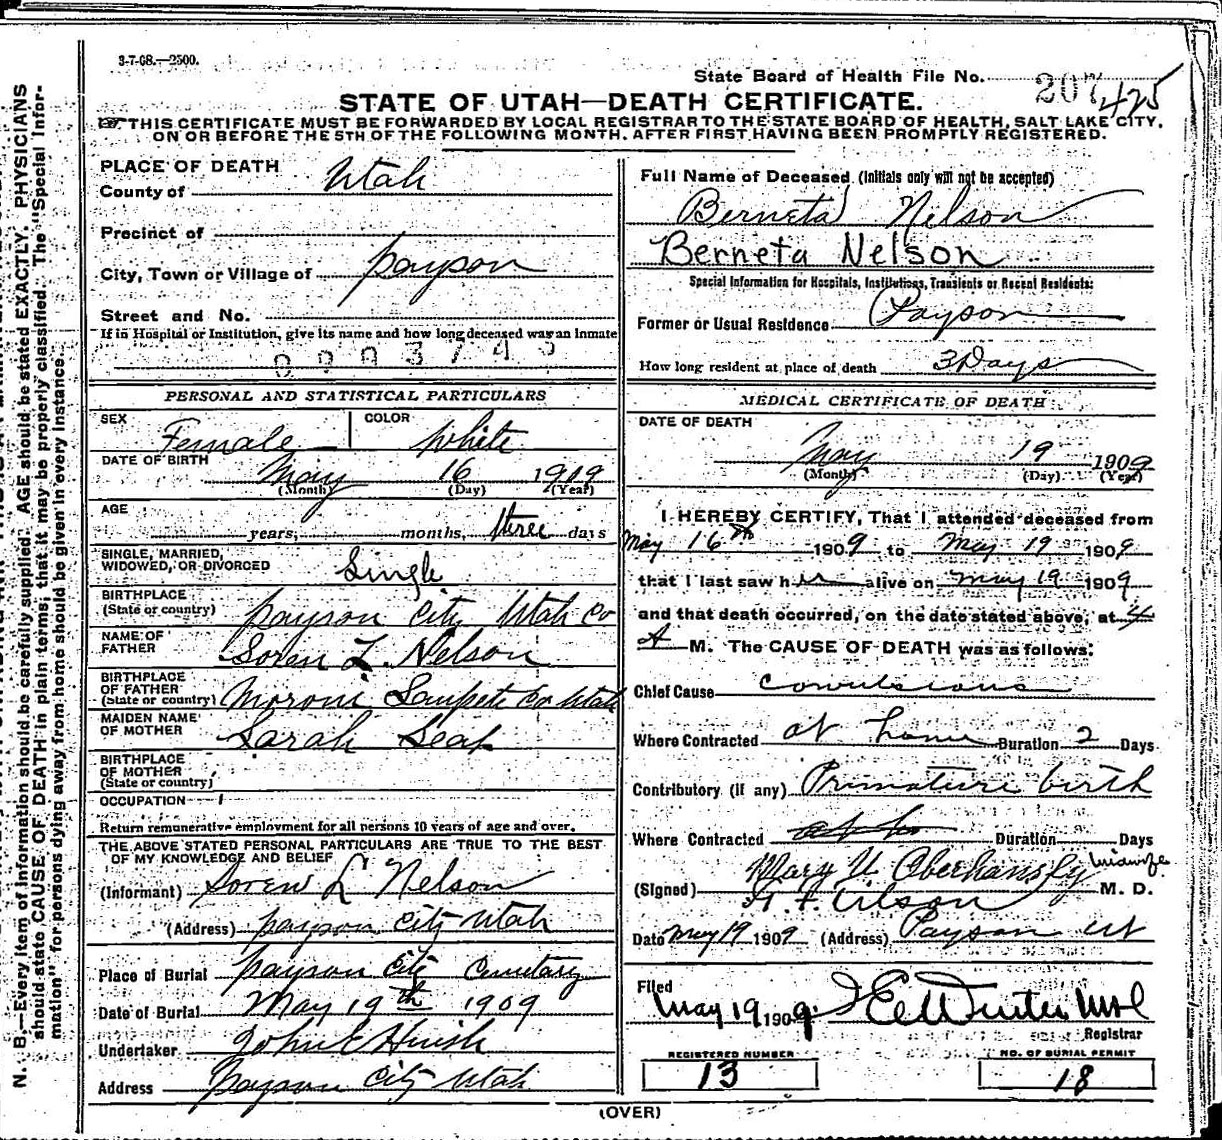 3-7-08.—2500.
State Board of Health File No. 207 425
STATE OF UTAH—DEATH CERTIFICATE.
THIS CERTIFICATE MUST BE FORWARDED BY LOCAL REGISTRAR TO THE STATE BOARD OF HEALTH, SALT LAKE CITY,
ON OR BEFORE THE 5TH OF THE FOLLOWING MONTH, AFTER FIRST HAVING BEEN PROMPTLY REGISTERED.
N. B.—Every item of information should be carefully supplied. AGE should be stated EXACTLY. PHYSICIANS
should state CAUSE OF DEATH in plain terms, that it may be properly classified. The "Special Infor-
mation" for persons dying away from home should be given in every instance.
PLACE OF DEATH
County of Utah
Precinct of
City, Town or Village of Payson
Street and No.
If in Hospital or Institution, give its name and how long deceased was an inmate
PERSONAL AND STATISTICAL PARTICULARS
SEX Female COLOR White
DATE OF BIRTH May 16 1909
(Month) (Day) (Year)
AGE years, months, three days
SINGLE, MARRIED,
WIDOWED, OR DIVORCED Single
BIRTHPLACE
(State or country) Payson City Utah Co
NAME OF
FATHER Soren L. Nelson
BIRTHPLACE
OF FATHER
(State or country) Moroni Sanpete Co Utah
MAIDEN NAME
OF MOTHER Sarah
BIRTHPLACE
OF MOTHER
(State or country)
OCCUPATION
Return remunerative employment for all persons 10 years of age and over.
THE ABOVE STATED PERSONAL PARTICULARS ARE TRUE TO THE BEST
OF MY KNOWLEDGE AND BELIEF
(Informant) Soren L Nelson
(Address) Payson City Utah
Place of Burial Payson City Cemetary
Date of Burial May 19th 1909
Undertaker John E Huish
Address Payson City Utah
Full Name of Deceased (Initials only will not be accepted)
Berneta Nelson
Berneta Nelson
Special Information for Hospitals, Institutions, Transients or Recent Residents:
Former or Usual Residence Payson
How long resident at place of death 3 Days
MEDICAL CERTIFICATE OF DEATH
DATE OF DEATH
May 19 1909
(Month) (Day) (Year)
I HEREBY CERTIFY, That I attended deceased from
May 16th 1909 to May 19 1909
that I last saw her alive on May 19 1909
and that death occurred, on the date stated above, at 4
A M. The CAUSE OF DEATH was as follows:
Chief Cause convulsions
Where Contracted at home Duration 2 Days
Contributory (if any) Primature birth
Where Contracted Duration Days
Mary U Oberhansly Midwife
(Signed) M. D.
Date May 19 1909 (Address) Payson Ut
Filed
May 19 1909
Registrar
REGISTERED NUMBER
13
NO. OF BURIAL PERMIT
18
(OVER)